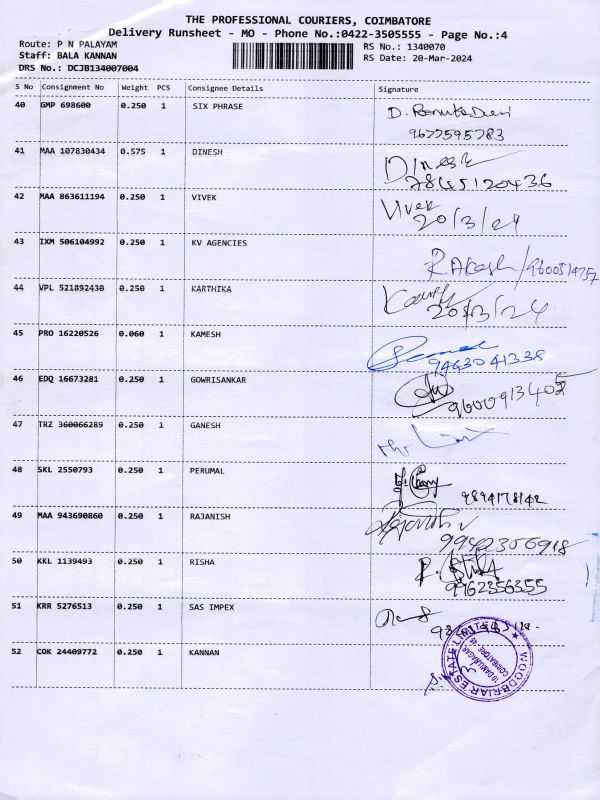 THE PROFESSIONAL COURIERS, COIMBATORE
Delivery Runsheet - MO - Phone No.:0422-3505555 - Page No.:4
Route: P N PALAYAM RS No.: 1340070
Staff: BALA KANNAN RS Date: 20-Mar-2024
DRS No.: DCJB134007004
S No Consignment No Weight PCS Consignee Details Signature
40 GMP 698600 0.250 1 SIX PHRASE
9677595783
41 MAA 107830434 0.575 1 DINESH Dinesh
7845120436
42 MAA 863611194 0.250 1 VIVEK Vivek
20/3/24
43 IXM 506104992 0.250 1 KV AGENCIES
RAkash/9600514757
44 VPL 521892430 0.250 1 KARTHIKA
20/3/24
45 PRO 16220526 0.060 1 KAMESH
9443041338
46 EDQ 16673281 0.250 1 GOWRISANKAR
9600913405
47 TRZ 360066289 0.250 1 GANESH
48 SKL 2550793 0.250 1 PERUMAL
9894178142
49 MAA 943690860 0.250 1 RAJANISH
9942306918
50 KKL 1139493 0.250 1 RISHA
9962356355
51 KRR 5276513 0.250 1 SAS IMPEX
52 COK 24409772 0.250 1 KANNAN
WOODBRIAR ESTATE LIMITED
COIMBATORE